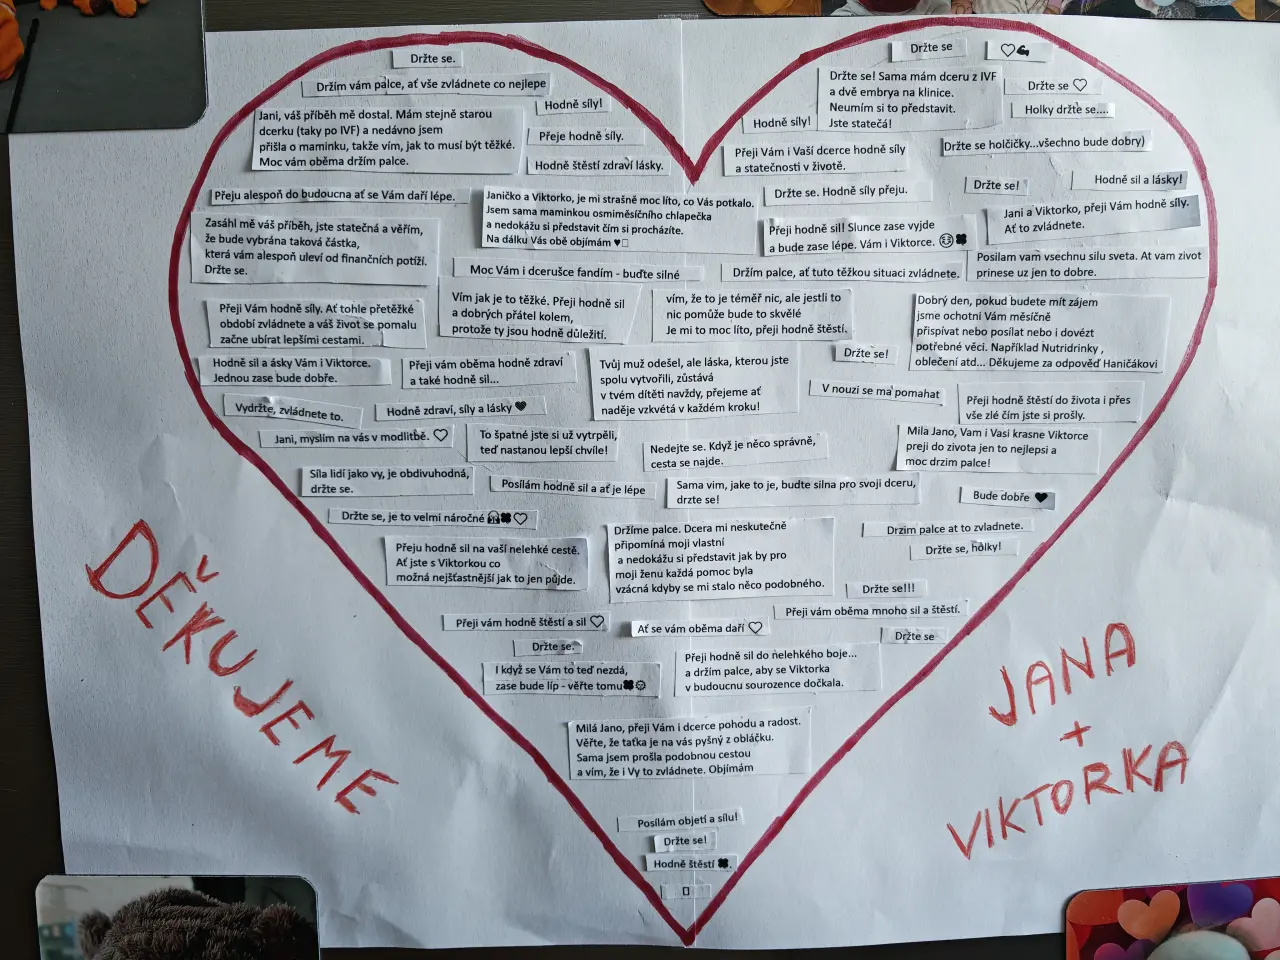 Držte se.
Držim vám palce, ať vše zvládnete co nejlepe
Jani, váš příběh mě dostal. Mám stejně starou
dcerku (taky po IVF) a nedávno jsem
přišla o maminku, takže vím, jak to musí být těžké.
Moc vám oběma držím palce.
Hodně síly!
Přeje hodně síly.
Hodně štěstí zdraví lásky.
Držte se
♡💪
Držte se! Sama mám dceru z IVF
a dvě embrya na klinice.
Neumím si to představit.
Jste statečá!
Držte se ♡
Holky držte se....
Hodně síly!
Držte se holčičky...všechno bude dobry)
Přeji Vám i Vaší dcerce hodně síly
a statečnosti v životě.
Hodně sil a lásky!
Držte se!
Držte se. Hodně síly přeju.
Přeju alespoň do budoucna ať se Vám daří lépe.
Janičko a Viktorko, je mi strašně moc líto, co Vás potkalo.
Jsem sama maminkou osmiměsíčního chlapečka
a nedokážu si představit čím si procházíte.
Na dálku Vás obě objímám ♥▯
Jani a Viktorko, přeji Vám hodně síly.
Ať to zvládnete.
Zasáhl mě váš příběh, jste statečná a věřím,
že bude vybrána taková částka,
která vám alespoň uleví od finančních potíží.
Držte se.
Přeji hodně sil! Slunce zase vyjde
a bude zase lépe. Vám i Viktorce. 🍀
Posilam vam vsechnu silu sveta. At vam zivot
prinese uz jen to dobre.
Moc Vám i dcerušce fandím - buďte silné
Držím palce, ať tuto těžkou situaci zvládnete.
Přeji Vám hodně síly. Ať tohle přetěžké
období zvládnete a váš život se pomalu
začne ubírat lepšími cestami.
Vím jak je to těžké. Přeji hodně sil
a dobrých přátel kolem,
protože ty jsou hodně důležití.
vím, že to je téměř nic, ale jestli to
nic pomůže bude to skvělé
Je mi to moc líto, přeji hodně štěstí.
Dobrý den, pokud budete mít zájem
jsme ochotní Vám měsíčně
přispívat nebo posílat nebo i dovézt
potřebné věci. Například Nutridrinky ,
oblečení atd... Děkujeme za odpověď Haničákovi
Hodně sil a ásky Vám i Viktorce.
Jednou zase bude dobře.
Přeji vám oběma hodně zdraví
a také hodně sil...
Tvůj muž odešel, ale láska, kterou jste
spolu vytvořili, zůstává
v tvém dítěti navždy, přejeme ať
naděje vzkvétá v každém kroku!
Držte se!
V nouzi se ma pomahat
Přeji hodně štěstí do života i přes
vše zlé čím jste si prošly.
Vydržte, zvládnete to.
Hodně zdraví, síly a lásky ♥
Jani, myslim na vás v modlitbě. ♡
To špatné jste si už vytrpěli,
teď nastanou lepší chvíle!
Nedejte se. Když je něco správně,
cesta se najde.
Mila Jano, Vam i Vasi krasne Viktorce
preji do zivota jen to nejlepsi a
moc drzim palce!
Síla lidí jako vy, je obdivuhodná,
držte se.
Posílám hodně sil a ať je lépe
Sama vim, jake to je, budte silna pro svoji dceru,
drzte se!
Bude dobře ♥
Držte se, je to velmi náročné 🍀♡
Držíme palce. Dcera mi neskutečně
připomíná moji vlastní
a nedokážu si představit jak by pro
moji ženu každá pomoc byla
vzácná kdyby se mi stalo něco podobného.
Drzim palce at to zvladnete.
Držte se, holky!
Přeju hodně sil na vaší nelehké cestě.
Ať jste s Viktorkou co
možná nejšťastnější jak to jen půjde.
Držte se!!!
Přeji vám oběma mnoho sil a štěstí.
Přeji vám hodně štěstí a sil ♡
Ať se vám oběma daří ♡
Držte se
Držte se.
I když se Vám to teď nezdá,
zase bude líp - věřte tomu🍀
Přeji hodně sil do nelehkého boje...
a držím palce, aby se Viktorka
v budoucnu sourozence dočkala.
Milá Jano, přeji Vám i dcerce pohodu a radost.
Věřte, že taťka je na vás pyšný z obláčku.
Sama jsem prošla podobnou cestou
a vím, že i Vy to zvládnete. Objímám
Posílám objetí a sílu!
Držte se!
Hodně štěstí 🍀.
▯
DĚKUJEME
JANA
+
VIKTORKA